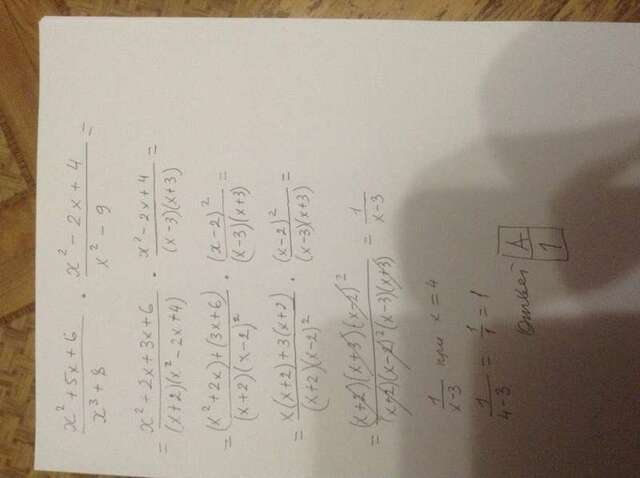 (x² + 5x + 6)/(x³ + 8) · (x² - 2x + 4)/(x² - 9) =
= (x² + 2x + 3x + 6)/((x+2)(x² - 2x + 4)) · (x² - 2x + 4)/((x-3)(x+3)) =
= ((x² + 2x) + (3x + 6))/((x+2)(x-2)²) · (x-2)²/((x-3)(x+3)) =
= (x(x+2) + 3(x+2))/((x+2)(x-2)²) · (x-2)²/((x-3)(x+3)) =
= ((x+2)(x+3)(x-2)²)/((x+2)(x-2)²(x-3)(x+3)) = 1/(x-3)
1/(x-3) при x = 4
1/(4-3) = 1/1 = 1
Ответ А
1